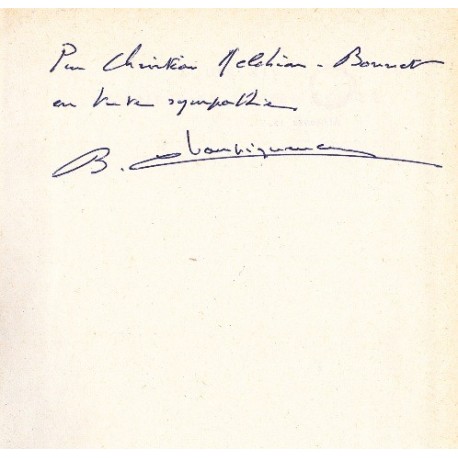 Pour Christian Melchior-Bonnet
en toute sympathie
B. Champigneulle